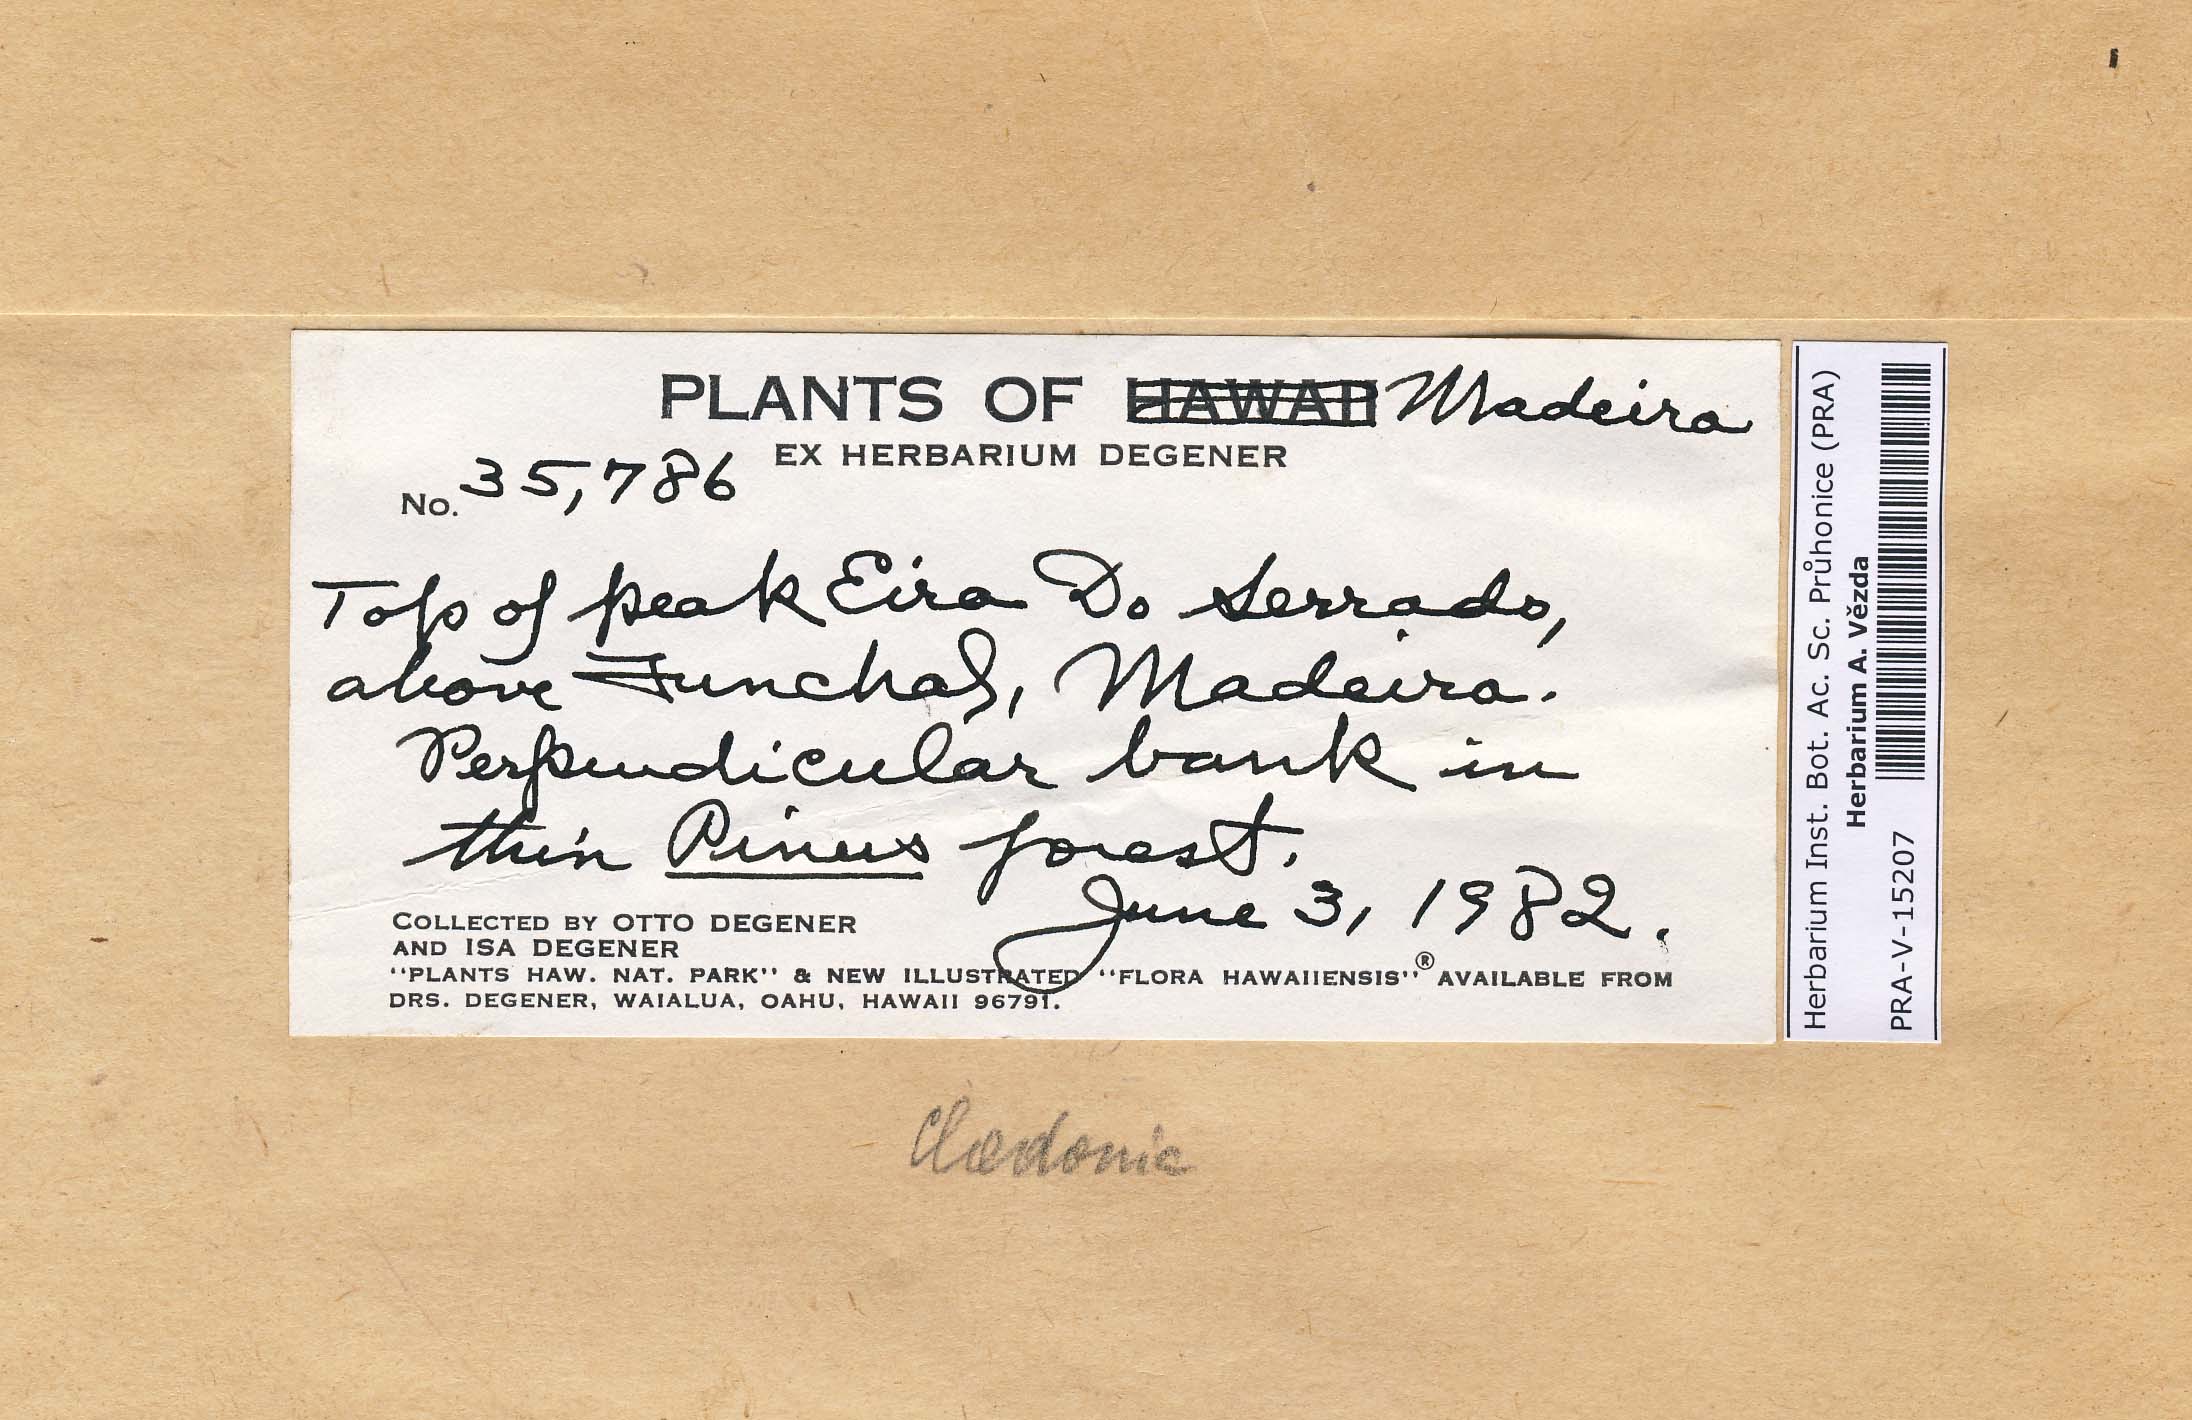 PLANTS OF HAWAII Madeira
EX HERBARIUM DEGENER
No. 35,786
Top of peak Eira Do Serrado,
above Funchal, Madeira.
Perpendicular bank in
thin Pinus forest.
June 3, 1982.
COLLECTED BY OTTO DEGENER
AND ISA DEGENER
"PLANTS HAW. NAT. PARK" & NEW ILLUSTRATED "FLORA HAWAIIENSIS"® AVAILABLE FROM
DRS. DEGENER, WAIALUA, OAHU, HAWAII 96791.
Herbarium Inst. Bot. Ac. Sc. Průhonice (PRA)
Herbarium A. Vězda
PRA-V-15207
Cladonia